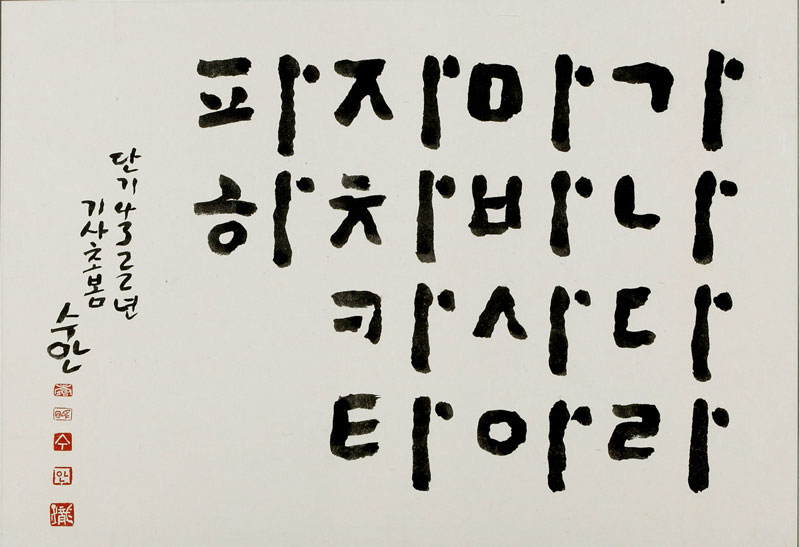 가나다라
마바사아
자차카타
파하
단기4322년
기사초봄
수안
수
안